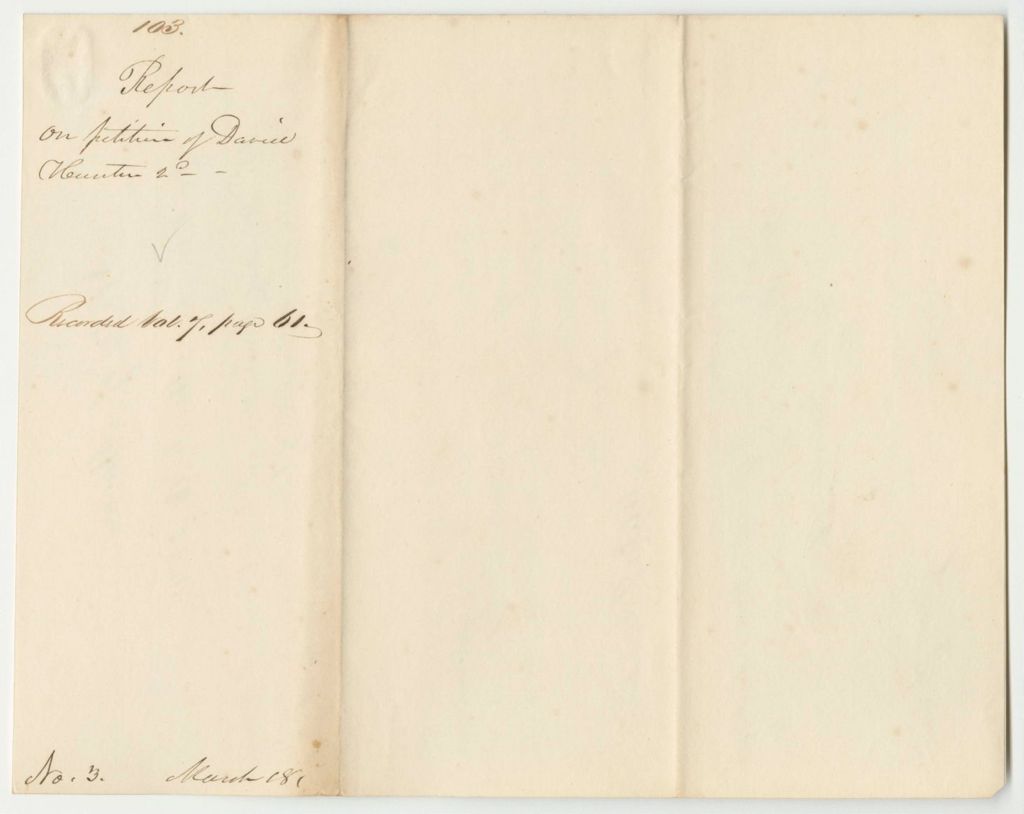 103.
Report
on petition of David
Hunter 2d - -
Recorded Vol. 7, page 61.
No. 3. March 18